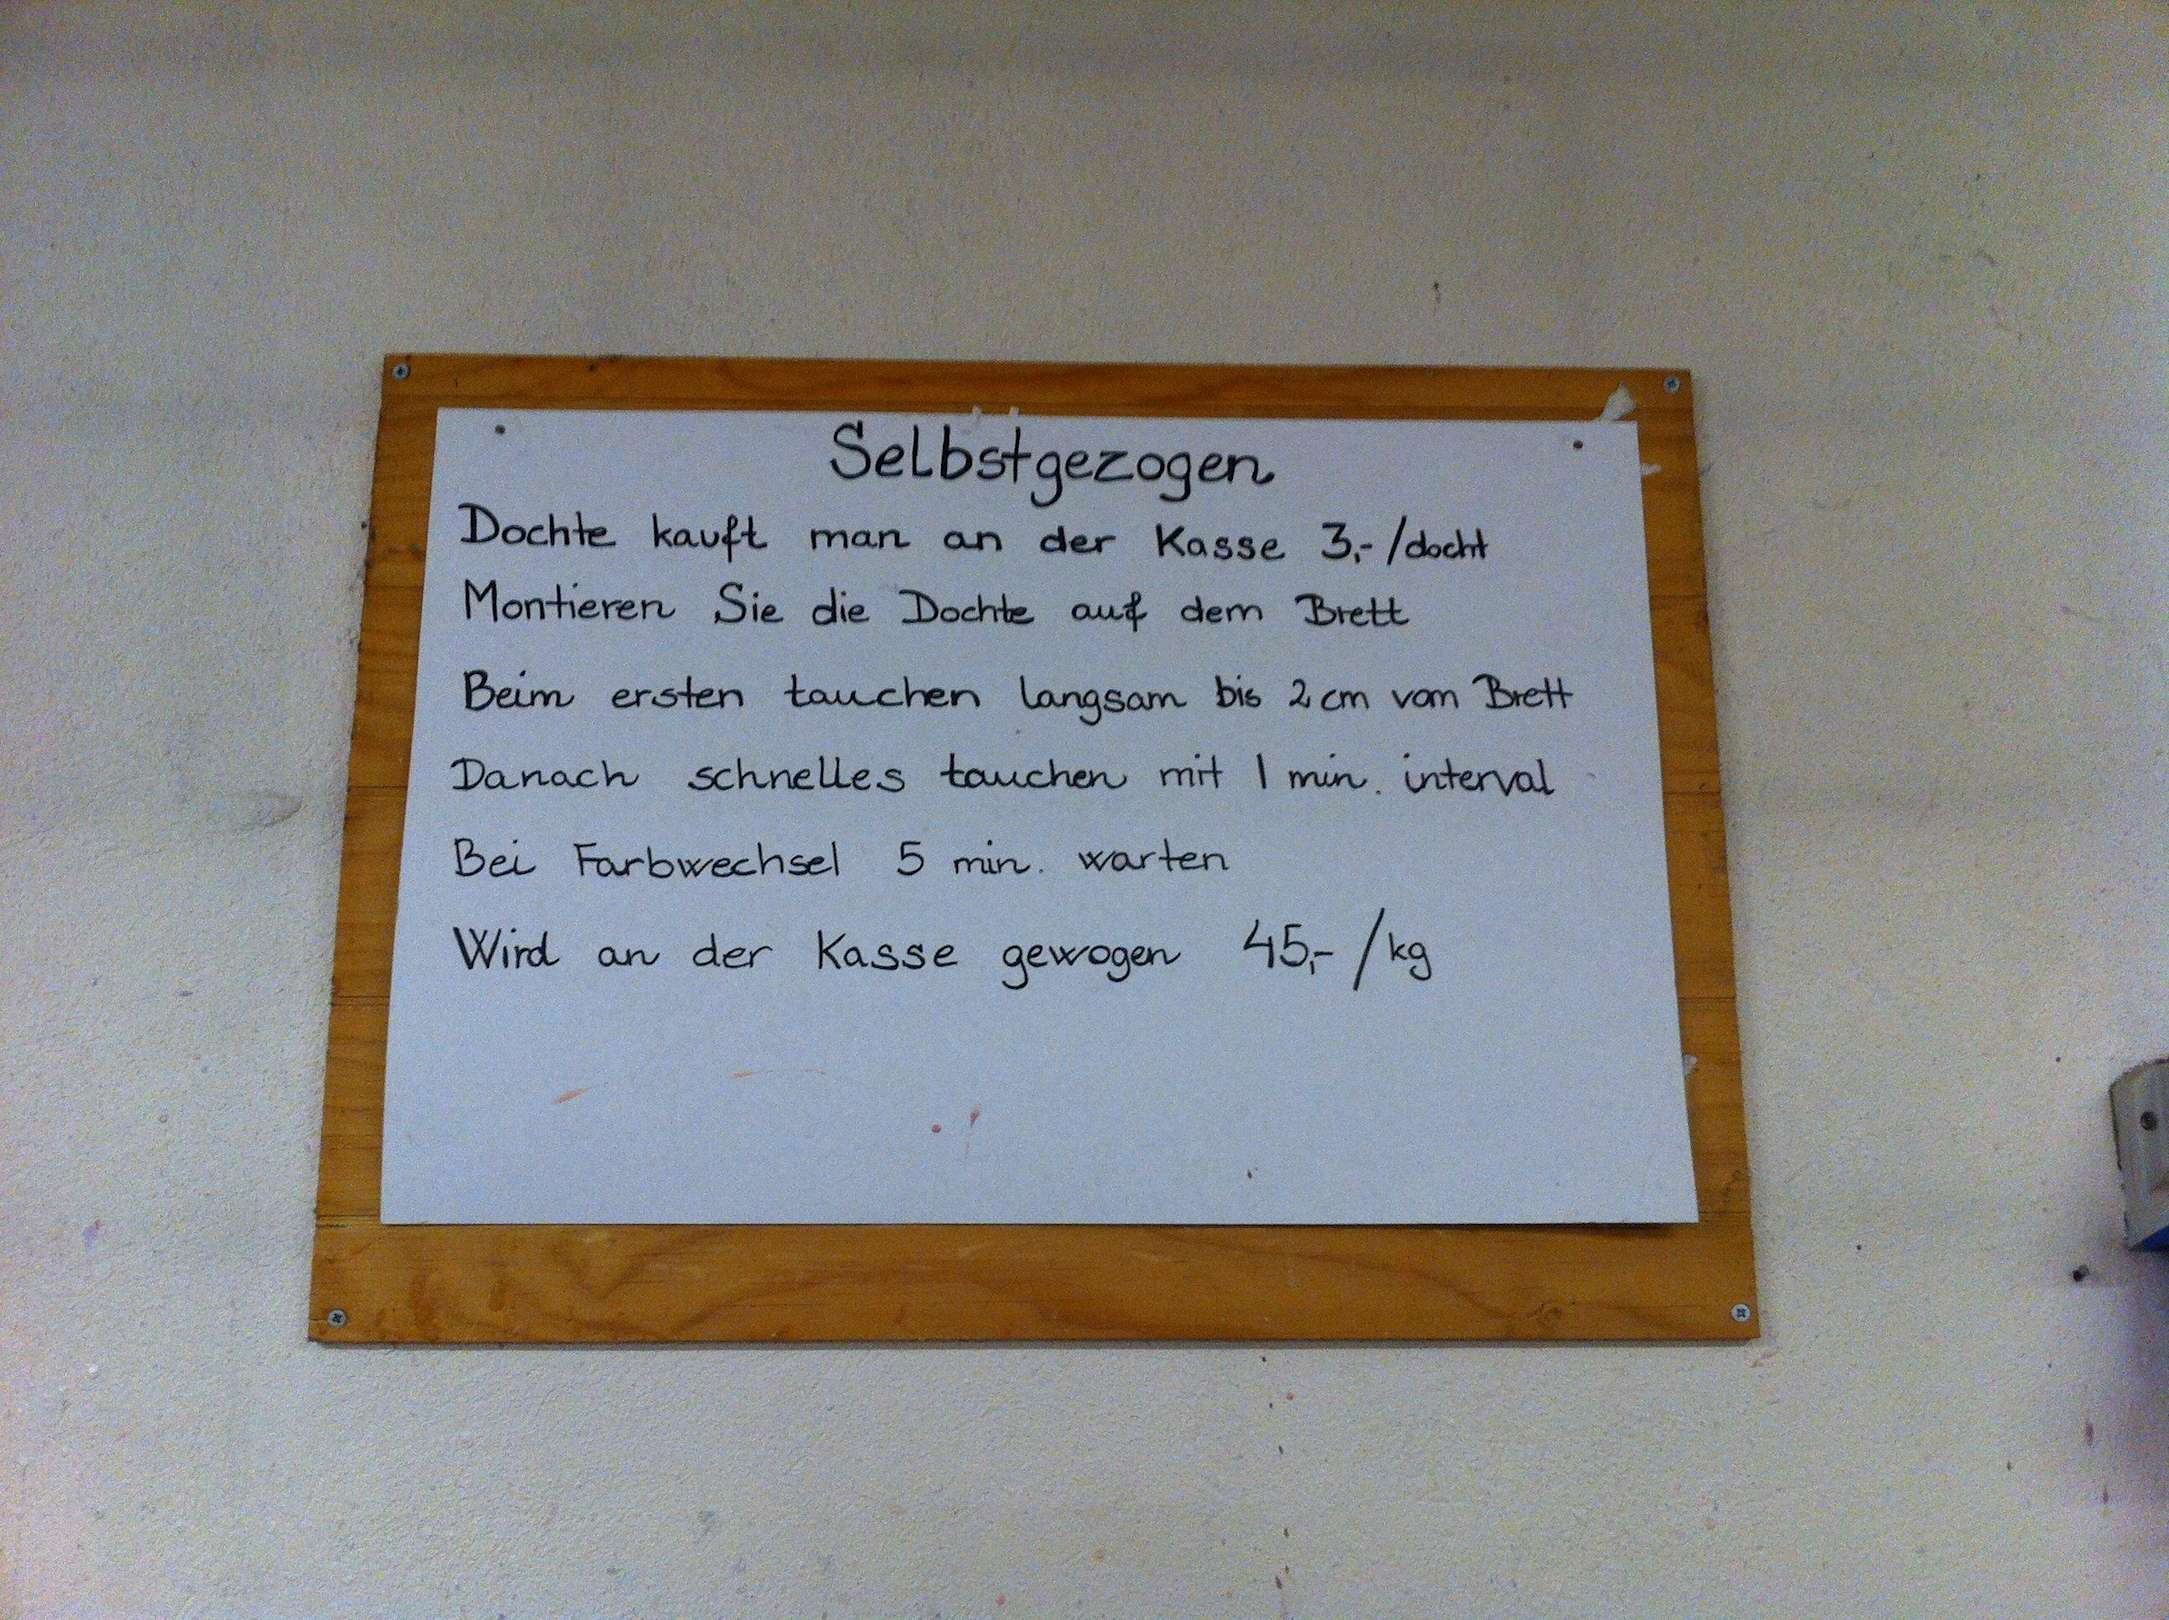 Selbstgezogen
Dochte kauft man an der Kasse 3,- /docht
Montieren Sie die Dochte auf dem Brett
Beim ersten tauchen langsam bis 2 cm vom Brett
Danach schnelles tauchen mit 1 min. interval
Bei Farbwechsel 5 min. warten
Wird an der Kasse gewogen 45,- /kg